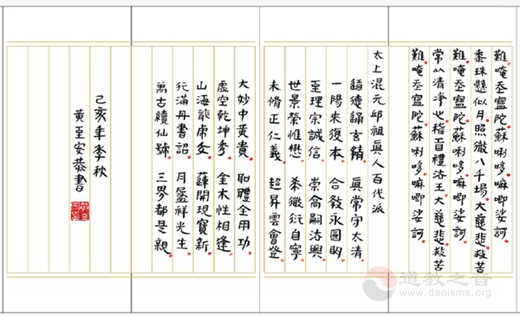 難唵丞靈陀蘇唎哆嘛唧娑訶
黍珠懸似月照徹八千場大慈悲救苦
難唵丞靈陀蘇唎哆嘛唧娑訶
常以清淨心稽首禮法王大慈悲救苦
難唵丞靈陀蘇唎哆嘛唧娑訶
太上混元邱祖真人百代派
道德通玄靜 真常守太清
一陽來復本 合教永圓明
至理宗誠信 崇高嗣法興
世景榮惟懋 希微衍自寧
未修正仁義 超昇雲會登
大妙中黃貴 聖體全用功
虛空乾坤秀 金木性相逢
山海龍虎交 蓮開現寶新
行滿丹書詔 月盈祥光生
萬古續仙號 三界都是親
己亥年季秋
黃至安恭書
道教之音
www.daoisms.org